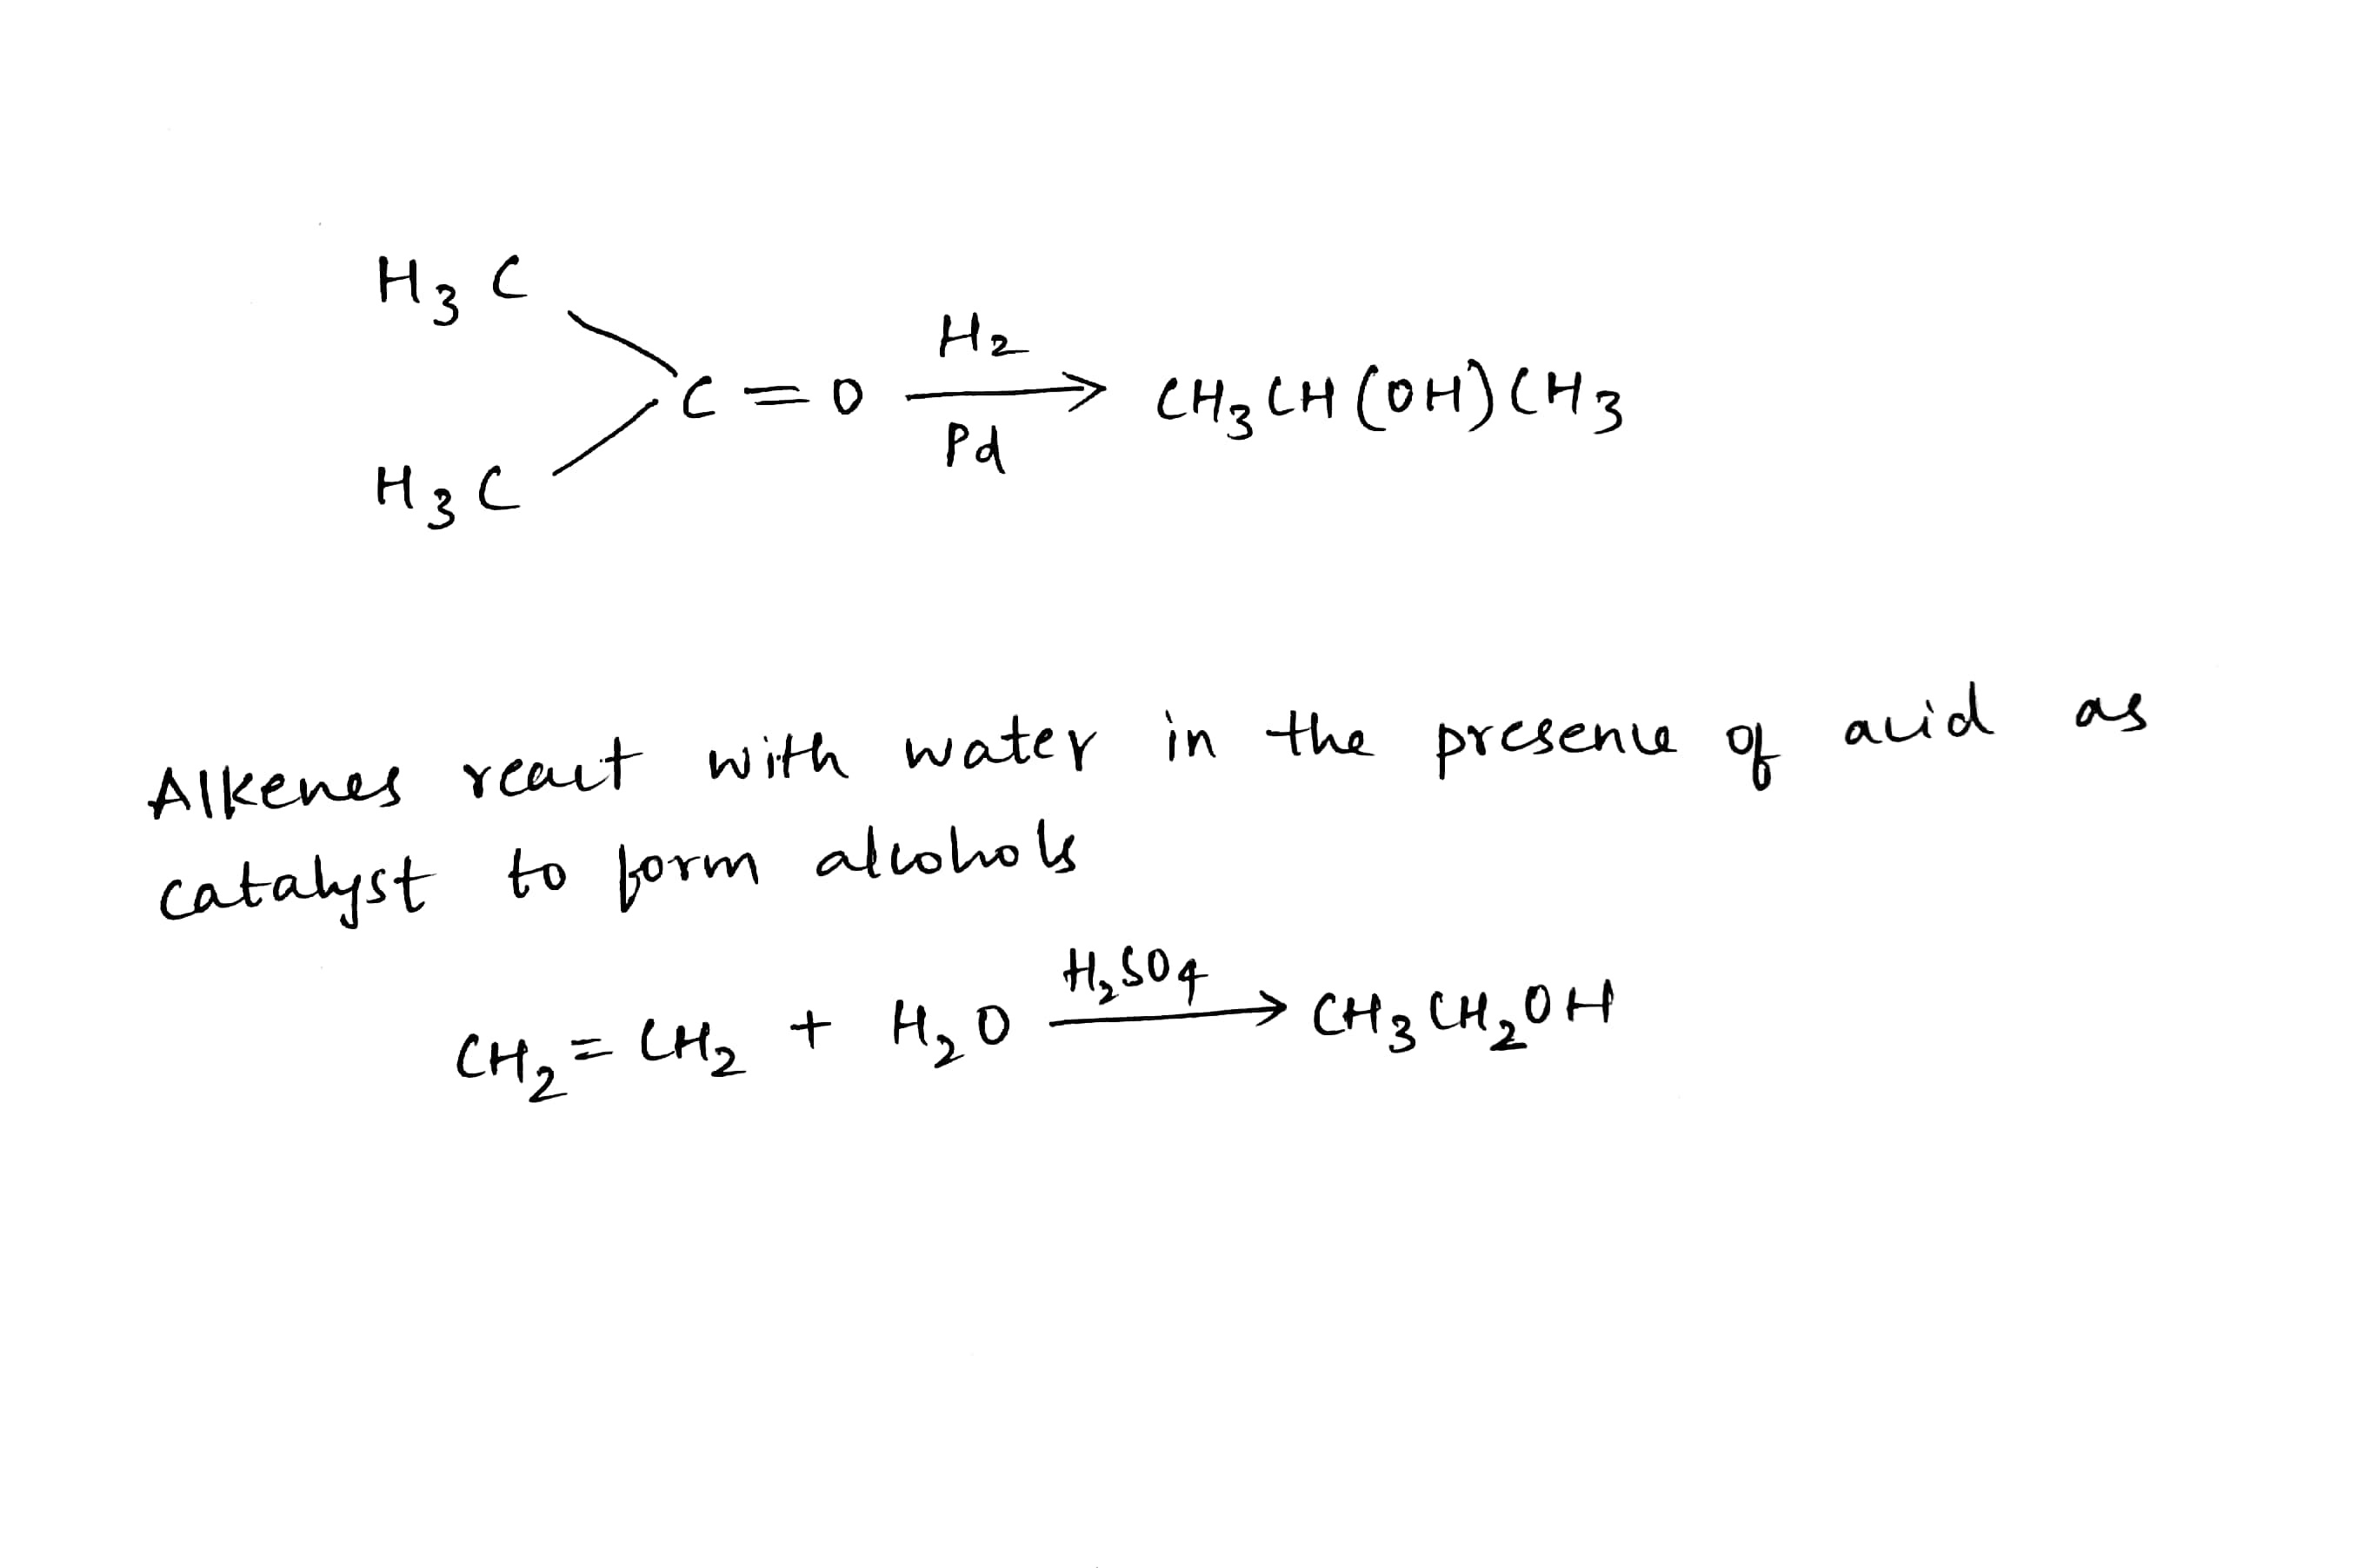 H3C
H2
C=O → CH3CH(OH)CH3
Pd
H3C
Alkenes react with water in the presence of acid as
catalyst to form alcohols
H2SO4
CH2=CH2 + H2O → CH3CH2OH